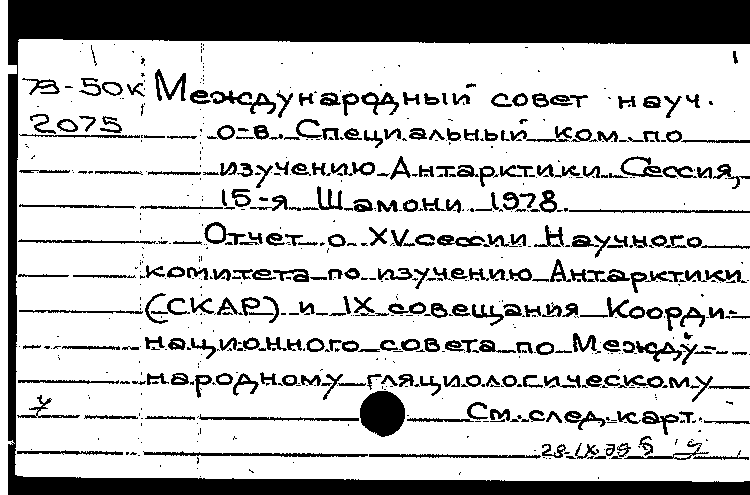 Международный совет науч.
2075
о-в. Специальный ком. по
изучению Антарктики. Сессия,
15-я. Шамони. 1978.
Отчет о XV сессии Научного
комитета по изучению Антарктики
(СКАР) и IX совещания Коорди-
национного совета по Между-
народному гляциологическому
См. след. карт.